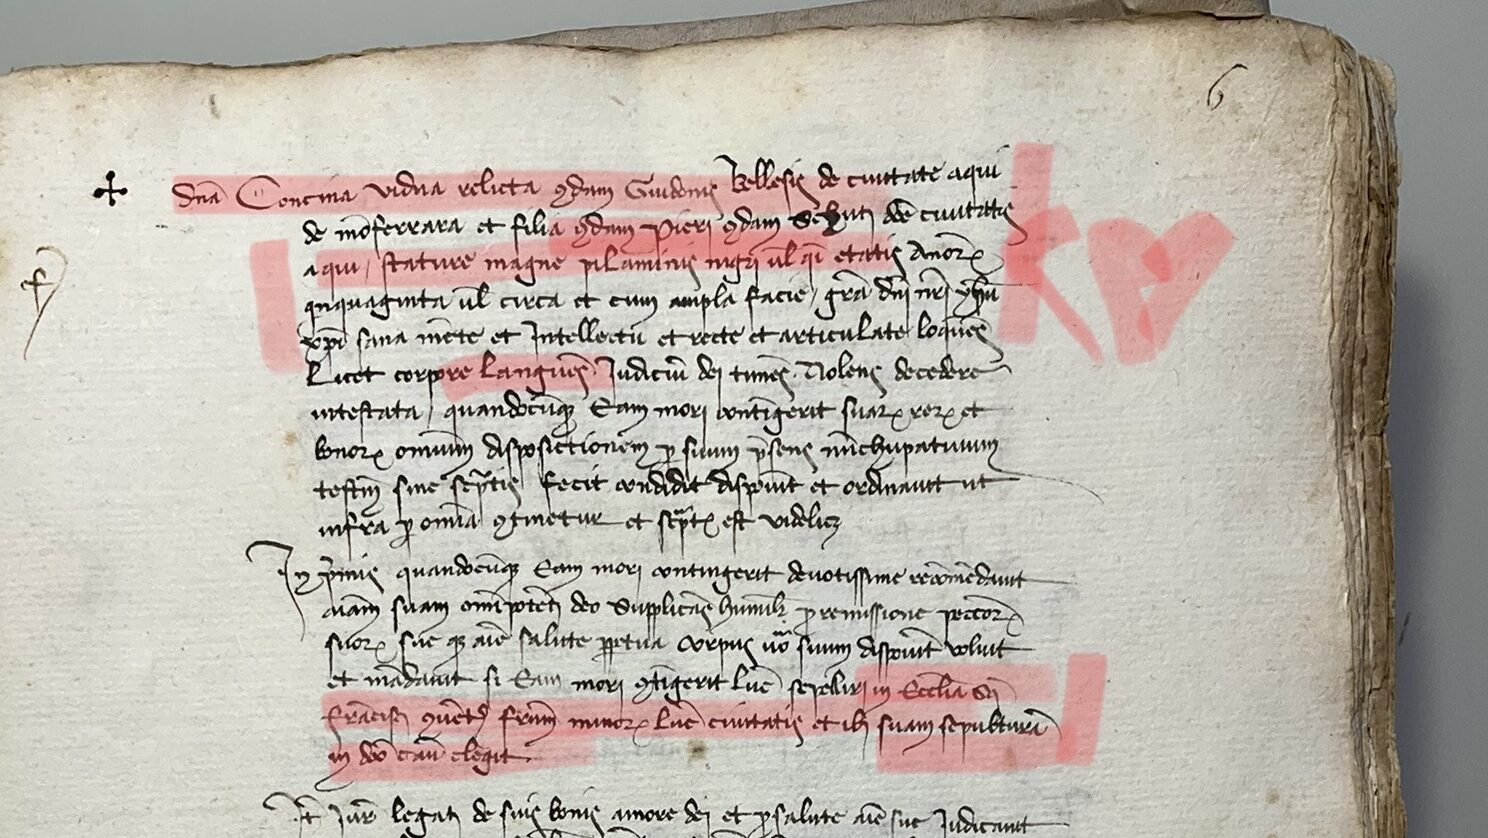 6
Dna Concina vidua relicta qdam Guidonis Bellesis de civitate aqui
de moferrara et filia qdam Pieri qdam de civitatis
aqui, stature magne pilaminis nigri vl qi etatis Anor
qnquaginta vl circa et cum ampla facie, gra dni nri yhu
xpi sana mete et Intellectu et recte et articulate loques
Licet corpore langues Judiciu dei times Nolens decedere
intestata, quandocuqz Eam mori contigerit suar rer et
bonor omium disposictionem p suum psens nuchupativum
testm sine scptis fecit condidit disposuit et ordinavit ut
infra p omia qtinetur et scpt est videlicz
In pmis quandocuqz Eam mori contingerit devotissime recomedavit
aiam suam omipoteti deo Supplicas humilr p remissione peccor
suor sue qz aie salute ppetua Corpus vo suum disposuit voluit
et madavit si Eam mori qtigerit Luce sepelliri in Ecclia Sci
Fracisi quet frum minor Luce civitatis et ibi suam sepultura
in dco casu elegit
It Jure legati de suis bonis amore dei et p salute aie sue Judicavit